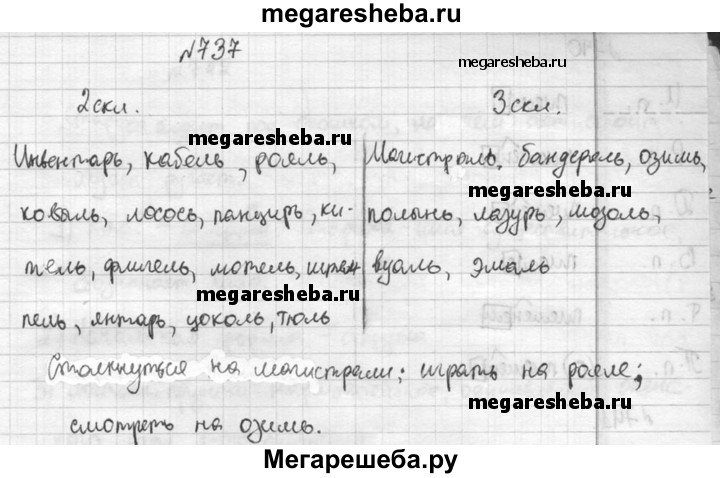 megaresheba.ru
№737
megaresheba.ru
2скл. 3скл.
megaresheba.ru
Инвентарь, кабель, рояль, Магистраль, бандероль, озимь,
megaresheba.ru
коваль, лосось, панцирь, ки- полынь, лазурь, мозоль,
тель, флигель, мотель, штем вуаль, эмаль
megaresheba.ru
пель, янтарь, цоколь, тюль
Столкнуться на магистрали; играть на рояле;
megaresheba.ru
смотреть на озимь.
Мегарешеба.ру